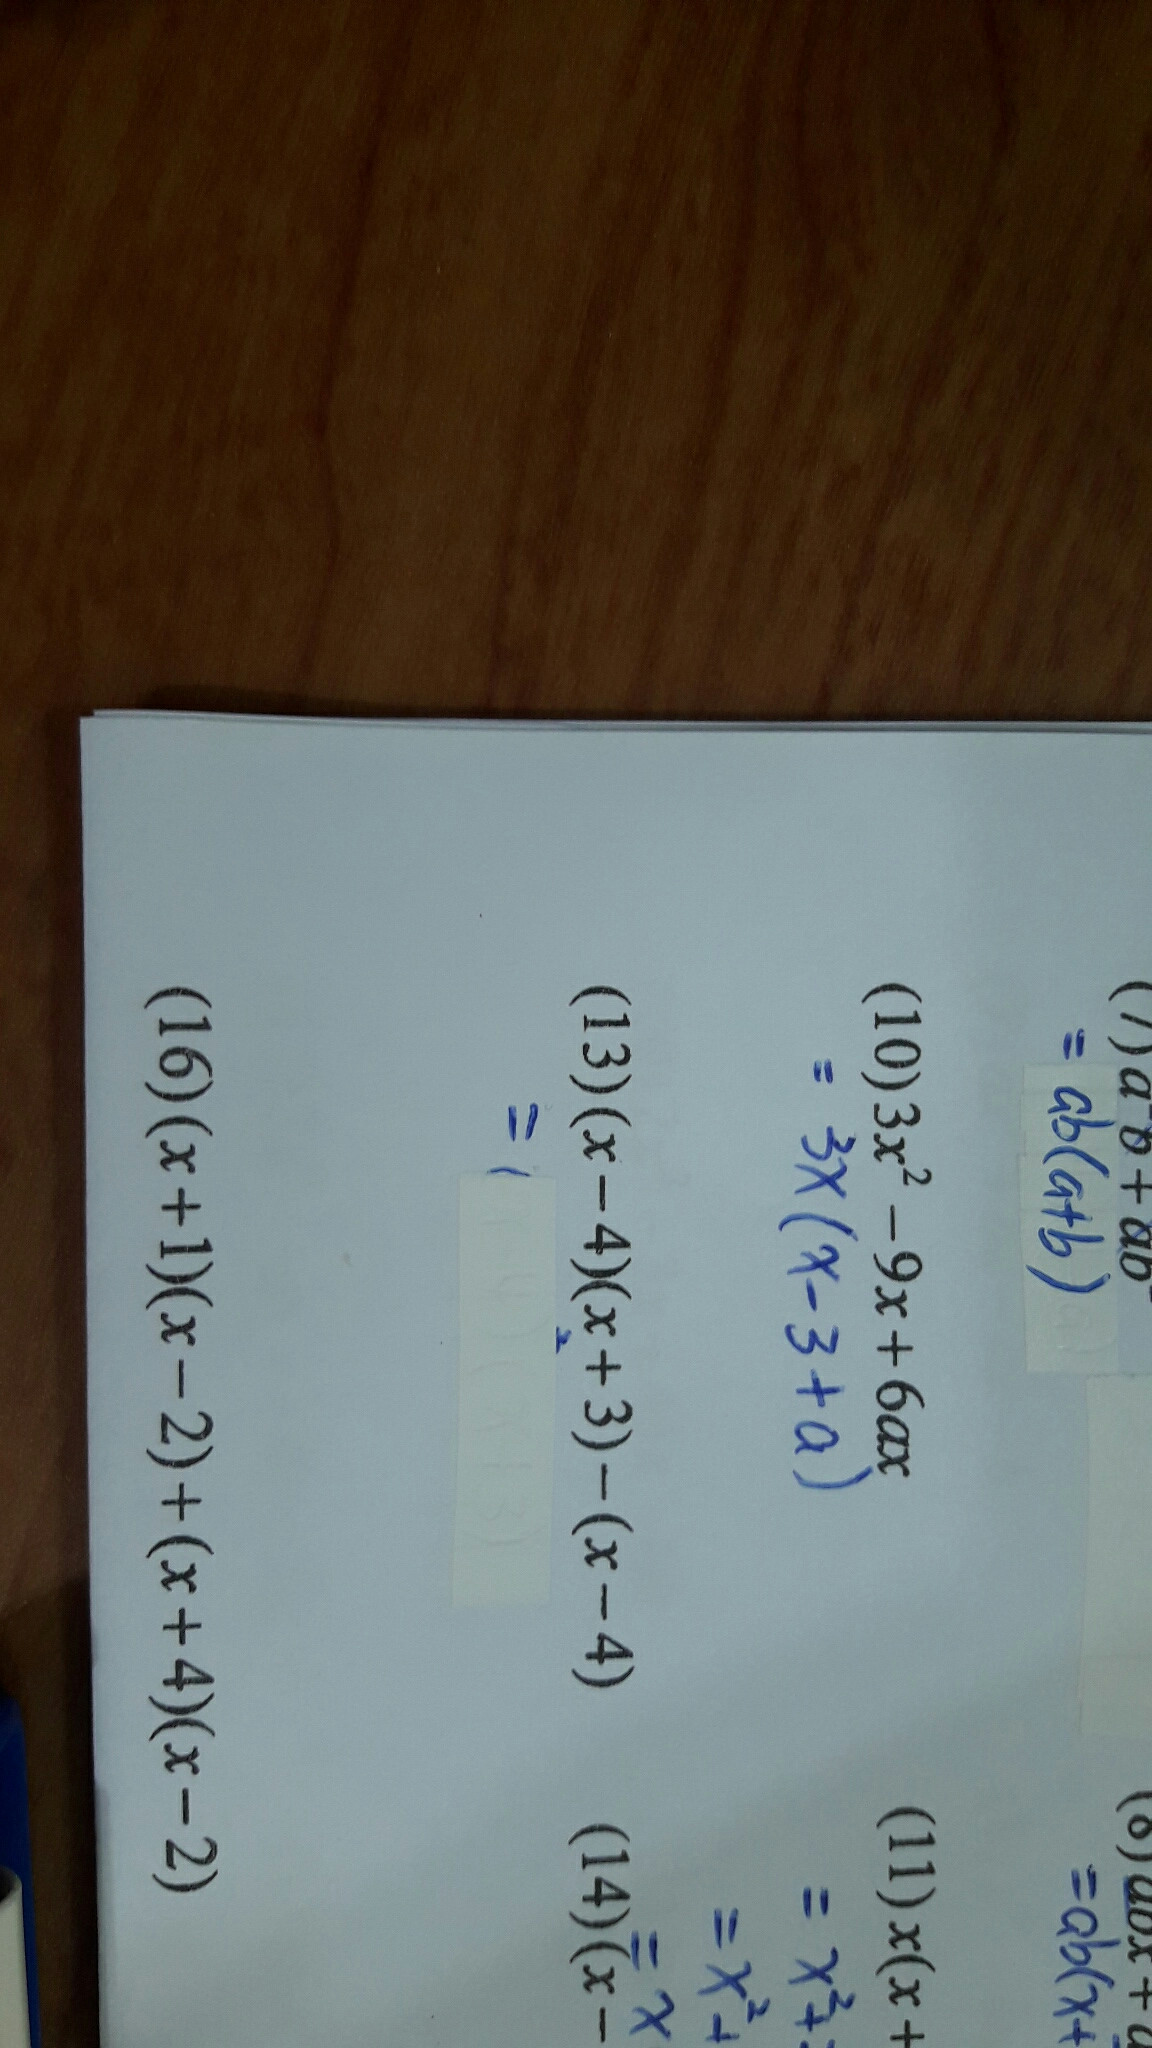 (7) a²b + ab²
= ab(a+b)
(8) abx + a
= ab(x+
(10) 3x² − 9x + 6ax
= 3x(x−3+a)
(11) x(x +
= x²+
= x²+
(13) (x − 4)(x + 3) − (x − 4)
= (
(14) (x −
= x
(16) (x + 1)(x − 2) + (x + 4)(x − 2)